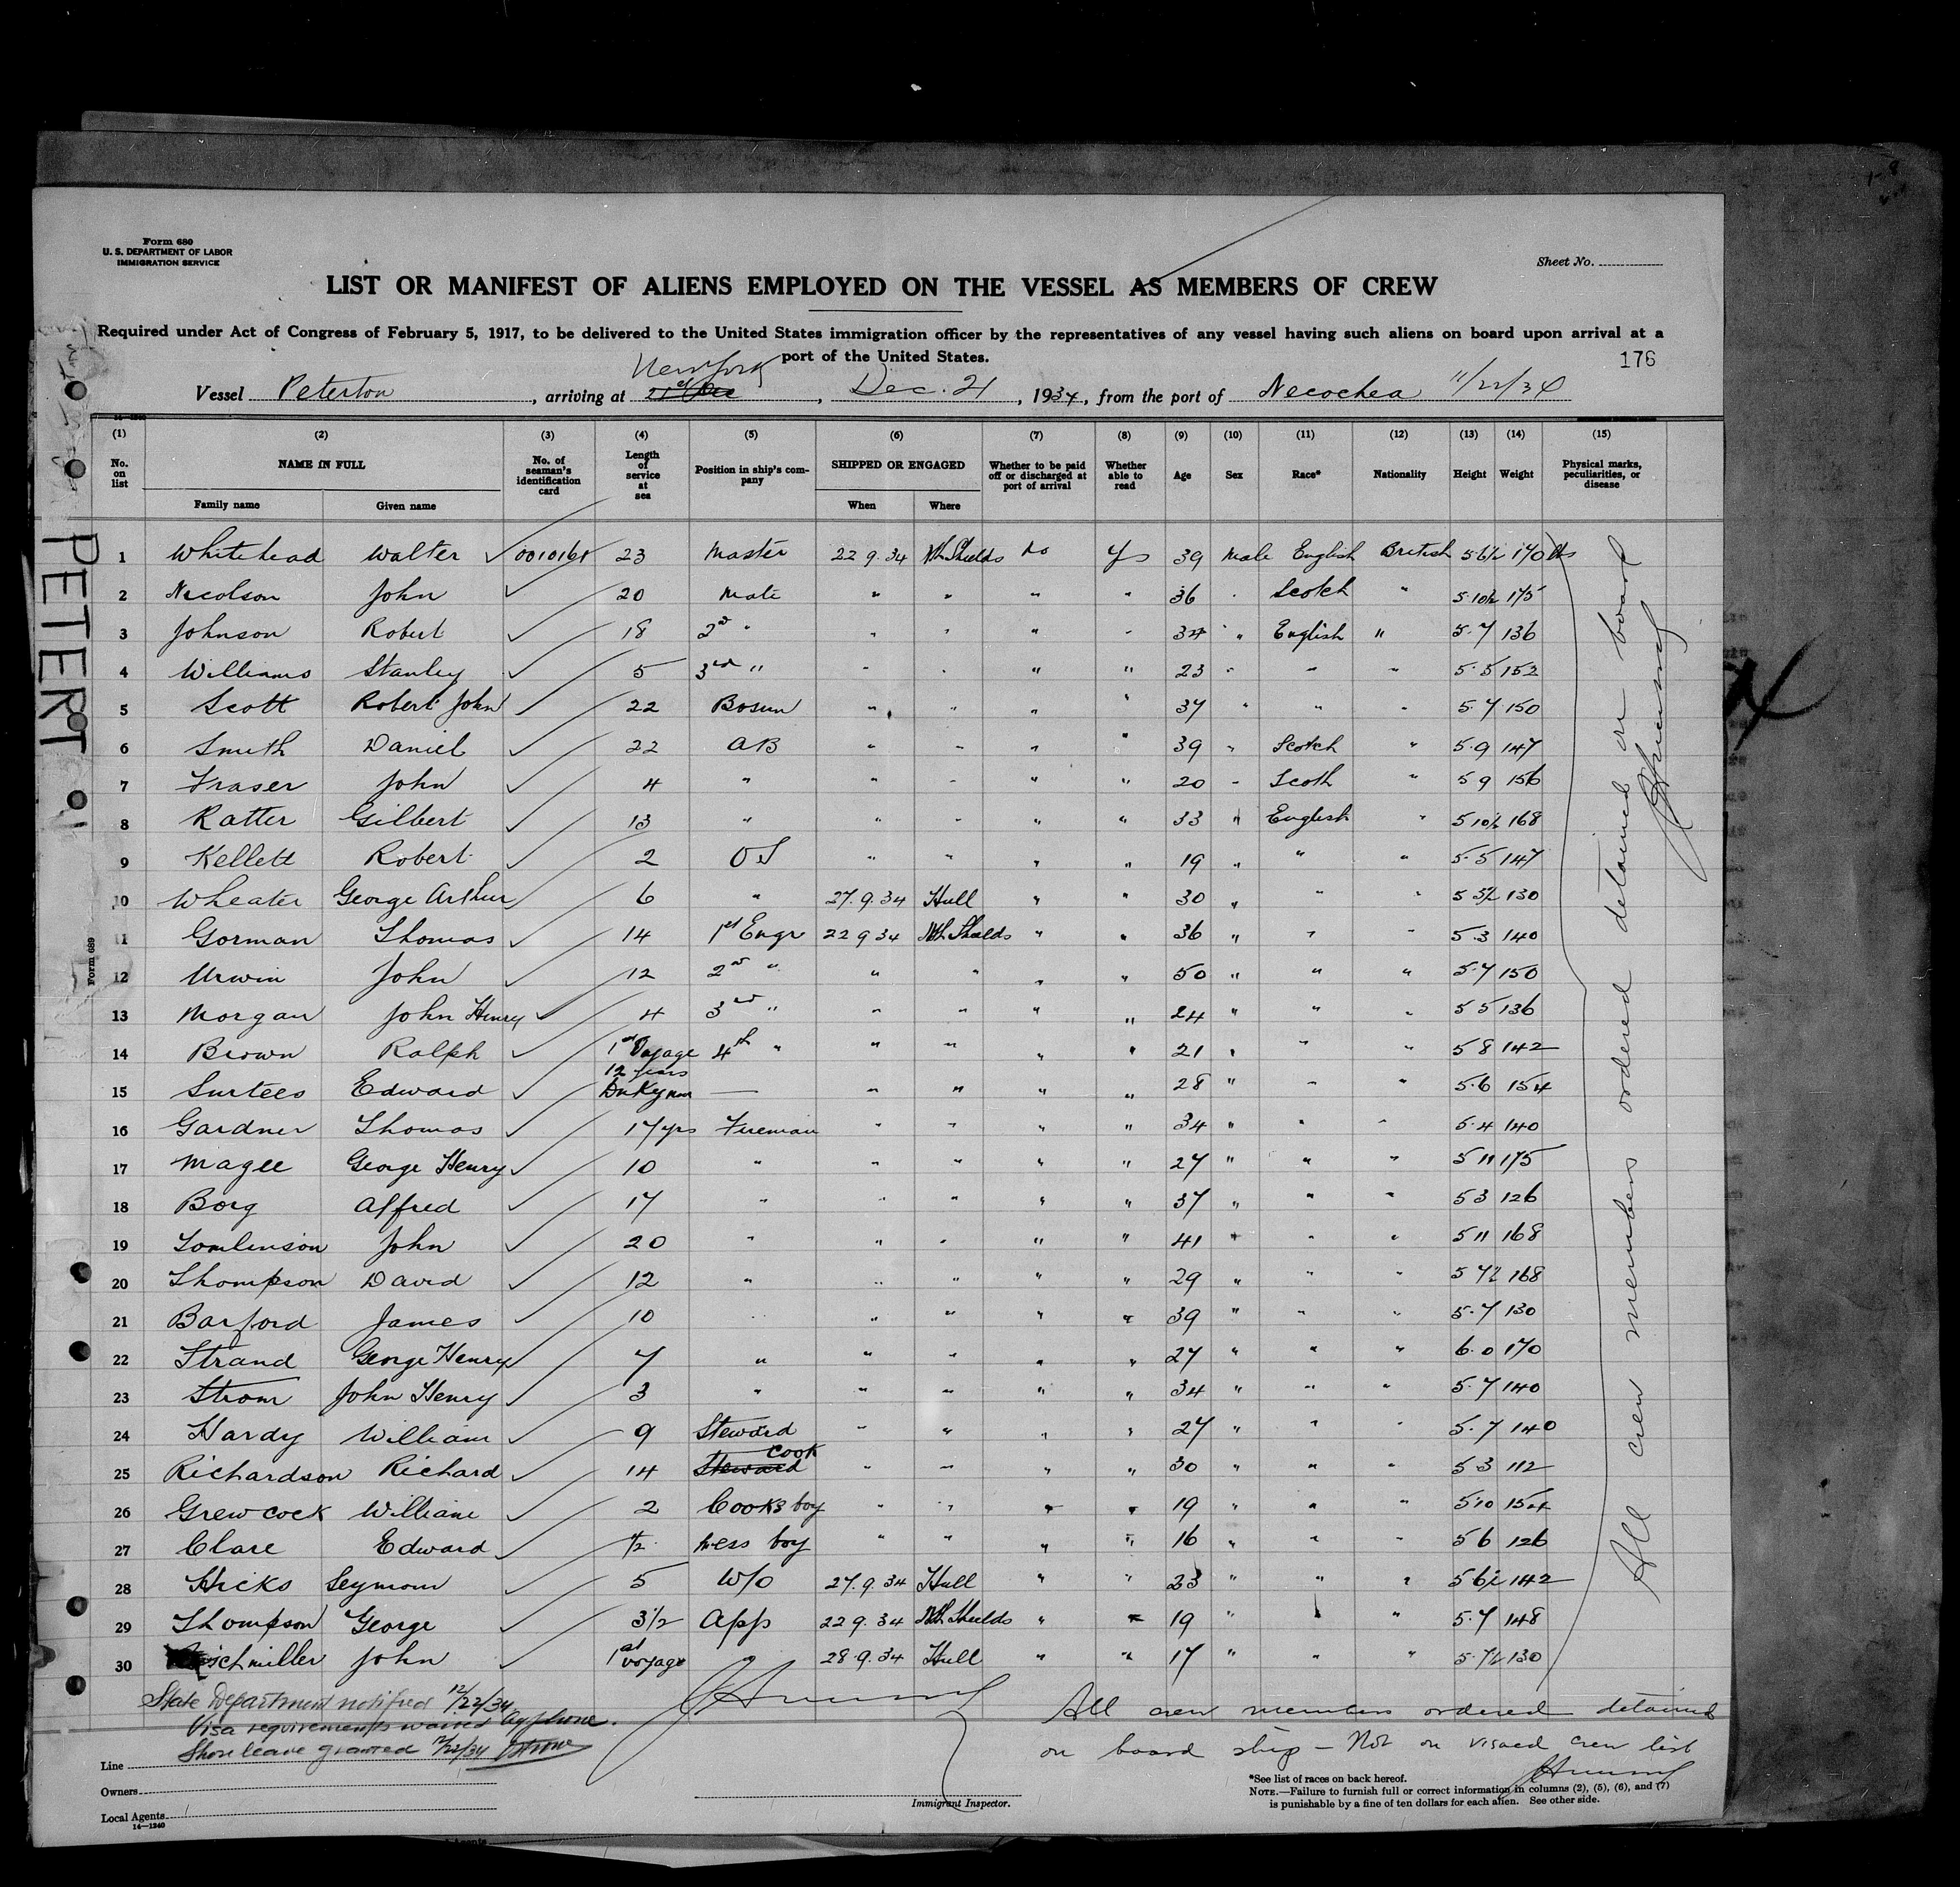 Form 680
U. S. DEPARTMENT OF LABOR
IMMIGRATION SERVICE
Sheet No.
LIST OR MANIFEST OF ALIENS EMPLOYED ON THE VESSEL AS MEMBERS OF CREW
Required under Act of Congress of February 5, 1917, to be delivered to the United States immigration officer by the representatives of any vessel having such aliens on board upon arrival at a
port of the United States.
176
New York
Vessel Peterton, arriving at 21st Dec, Dec. 21, 1934, from the port of Necochea 11/22/34
14-1240
(1) (2) (3) (4) (5) (6) (7) (8) (9) (10) (11) (12) (13) (14) (15)
No. on list NAME IN FULL No. of seaman's identification card Length of service at sea Position in ship's company SHIPPED OR ENGAGED Whether to be paid off or discharged at port of arrival Whether able to read Age Sex Race* Nationality Height Weight Physical marks, peculiarities, or disease
Family name Given name When Where
1 Whitehead Walter 0010161 23 Master 22 9 34 Nth Shields No Yes 39 Male English British 5 6½ 170 lbs
2 Nicolson John 20 Mate " " " " 36 " Scotch " 5 10½ 175
3 Johnson Robert 18 2nd " " " " " 34 " English " 5.7 136
4 Williams Stanley 5 3rd " " " " " 23 " " " 5.5 152
5 Scott Robert John 22 Bosun " " " " 37 " " " 5.7 150
6 Smith Daniel 22 AB " " " " 39 " Scotch " 5.9 147
7 Fraser John 4 " " " " " 20 " Scoth " 5 9 156
8 Ratter Gilbert 13 " " " " " 33 " English " 5 10½ 168
9 Kellett Robert 2 OS " " " " 19 " " " 5.5 147
10 Wheater George Arthur 6 " 27.9.34 Hull " " 30 " " " 5 5½ 130
11 Gorman Thomas 14 1st Engr 22 9 34 Nth Shields " " 36 " " " 5.3 140
12 Urwin John 12 2nd " " " " " 50 " " " 5.7 150
13 Morgan John Henry 4 3rd " " " " " 24 " " " 5 5 136
14 Brown Ralph 1st Voyage 4th " " " " " 21 " " " 5 8 142
15 Surtees Edward 12 years Dnkyman — " " " " 28 " " " 5.6 154
16 Gardner Thomas 17 yrs Fireman " " " " 34 " " " 5.4 140
17 Magee George Henry 10 " " " " " 27 " " " 5 11 175
18 Borg Alfred 17 " " " " " 37 " " " 5 3 126
19 Tomlinson John 20 " " " " " 41 " " " 5 11 168
20 Thompson David 12 " " " " " 29 " " " 5 7½ 168
21 Barford James 10 " " " " " 39 " " " 5.7 130
22 Strand George Henry 7 " " " " " 27 " " " 6.0 170
23 Strom John Henry 3 " " " " " 34 " " " 5.7 140
24 Hardy William 9 Steward " " " " 27 " " " 5.7 140
25 Richardson Richard 14 Steward Cook " " " " 30 " " " 5 3 112
26 Grewcock William 2 Cooks boy " " " " 19 " " " 5.10 154
27 Clare Edward ½ Mess boy " " " " 16 " " " 5 6 126
28 Hicks Seymour 5 W/O 27.9.34 Hull " " 23 " " " 5 6½ 142
29 Thompson George 3½ App 22 9.34 Nth Shields " " 19 " " " 5.7 148
30 schmiller John 1st voyage 28.9.34 Hull " " 17 " " " 5.7½ 130
All crew members ordered detained on board
PETERTON
Form 689
State Department notified 12/22/34
Visa requirements waived by phone.
Shore leave granted 12/22/34
All crew members ordered detained
on board ship — Not on visaed crew list
Line
Owners
Local Agents
14-1240
Immigrant Inspector.
*See list of races on back hereof.
NOTE.—Failure to furnish full or correct information in columns (2), (5), (6), and (7)
is punishable by a fine of ten dollars for each alien. See other side.